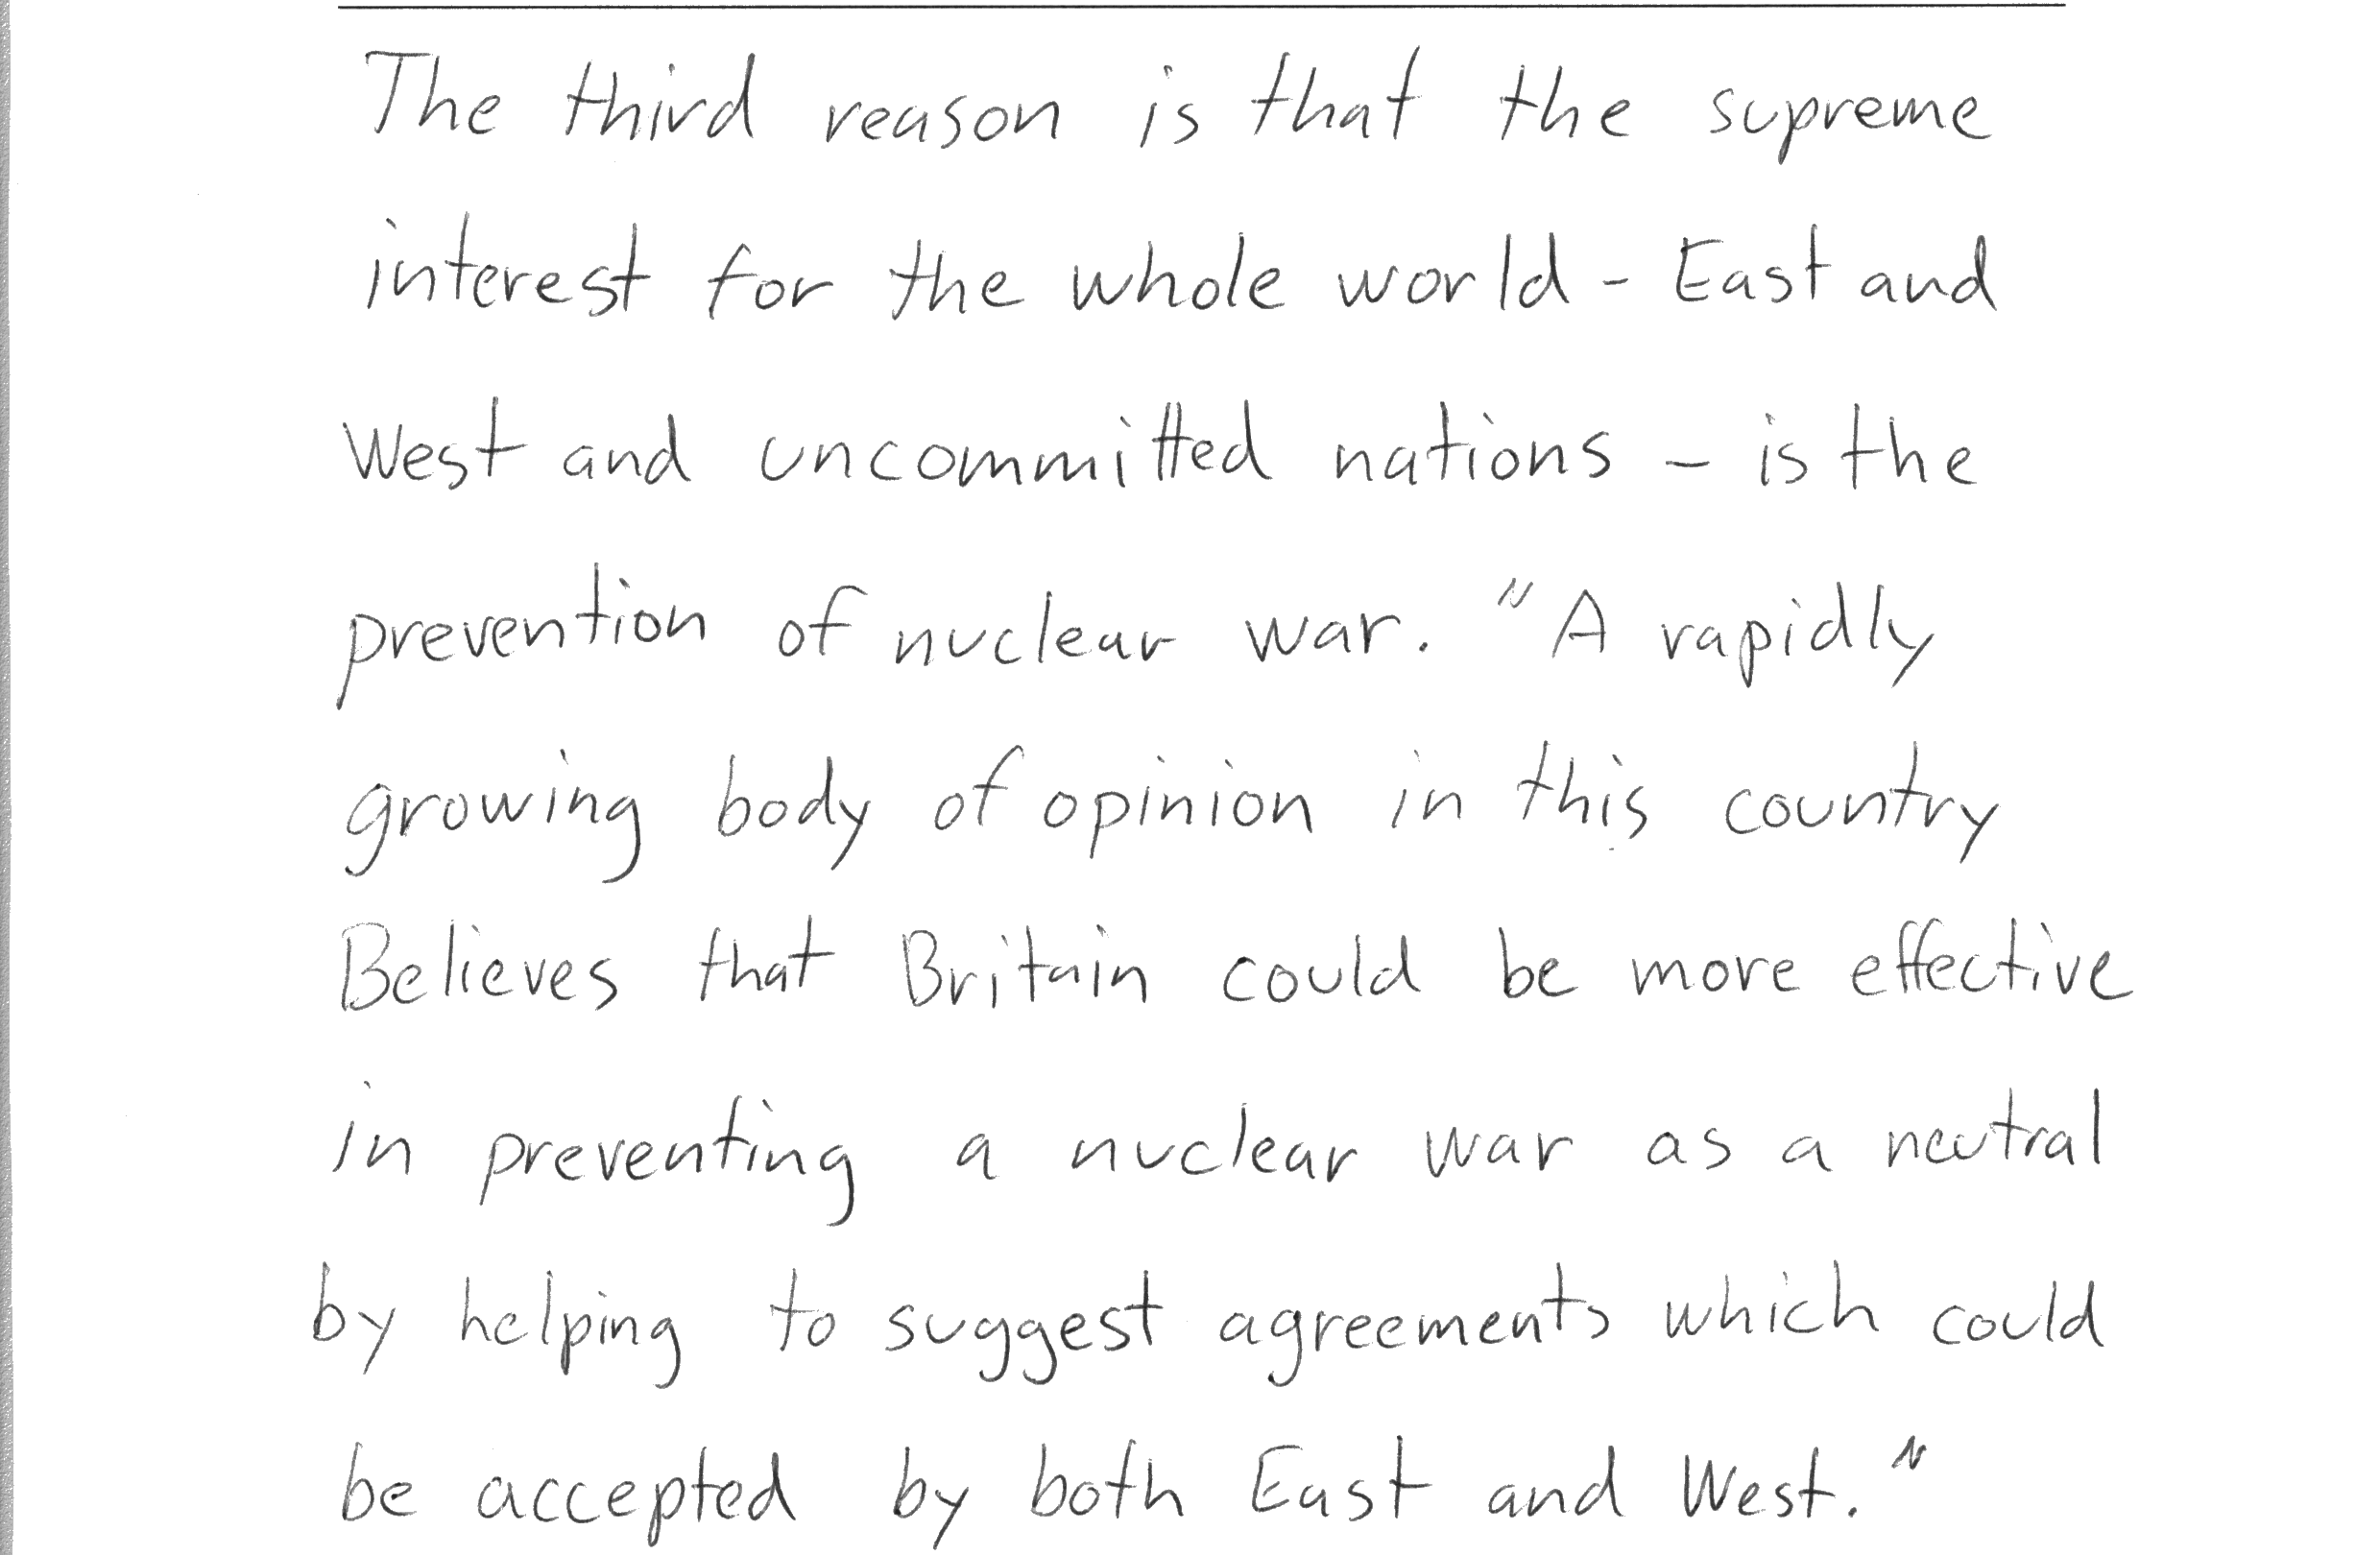 The third reason is that the supreme
interest for the whole world - East and
West and uncommitted nations - is the
prevention of nuclear war. "A rapidly
growing body of opinion in this country
Believes that Britain could be more effective
in preventing a nuclear war as a neutral
by helping to suggest agreements which could
be accepted by both East and West."